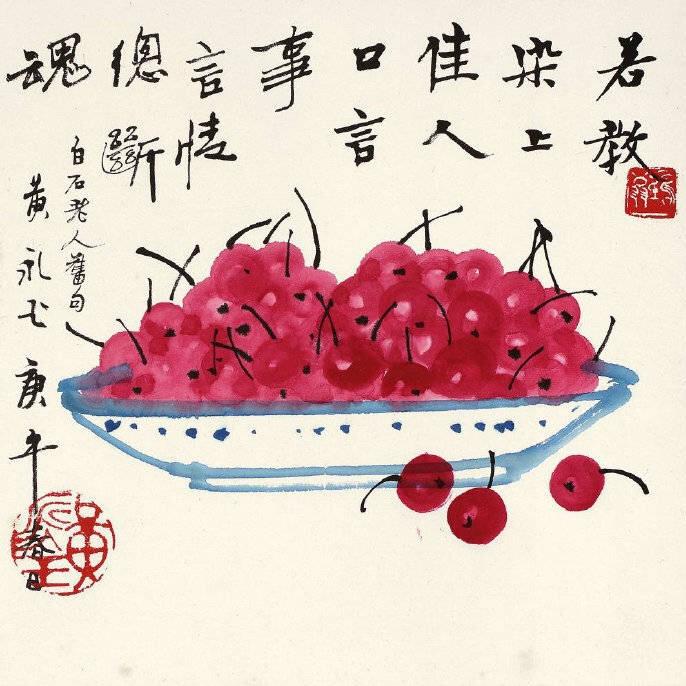 若教
染上
佳人
口言
事
言情
總斷
魂
白石老人舊句
黄永玉庚午春日